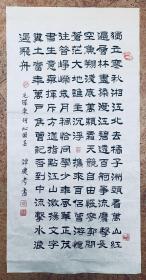 獨立寒秋湘江北去橘子洲頭看萬山紅
遍層林盡染漫江碧透百舸爭流鷹擊長
空魚翔淺底萬類霜天競自由悵寥廓問
蒼茫大地誰主沉浮攜來百侶曾遊憶
往昔崢嶸歲月稠恰同學少年風華正茂
書生意氣揮斥方遒指點江山激揚文字
糞土當年萬戶侯曾記否到中流擊水浪
遏飛舟
毛澤東詞沁園春